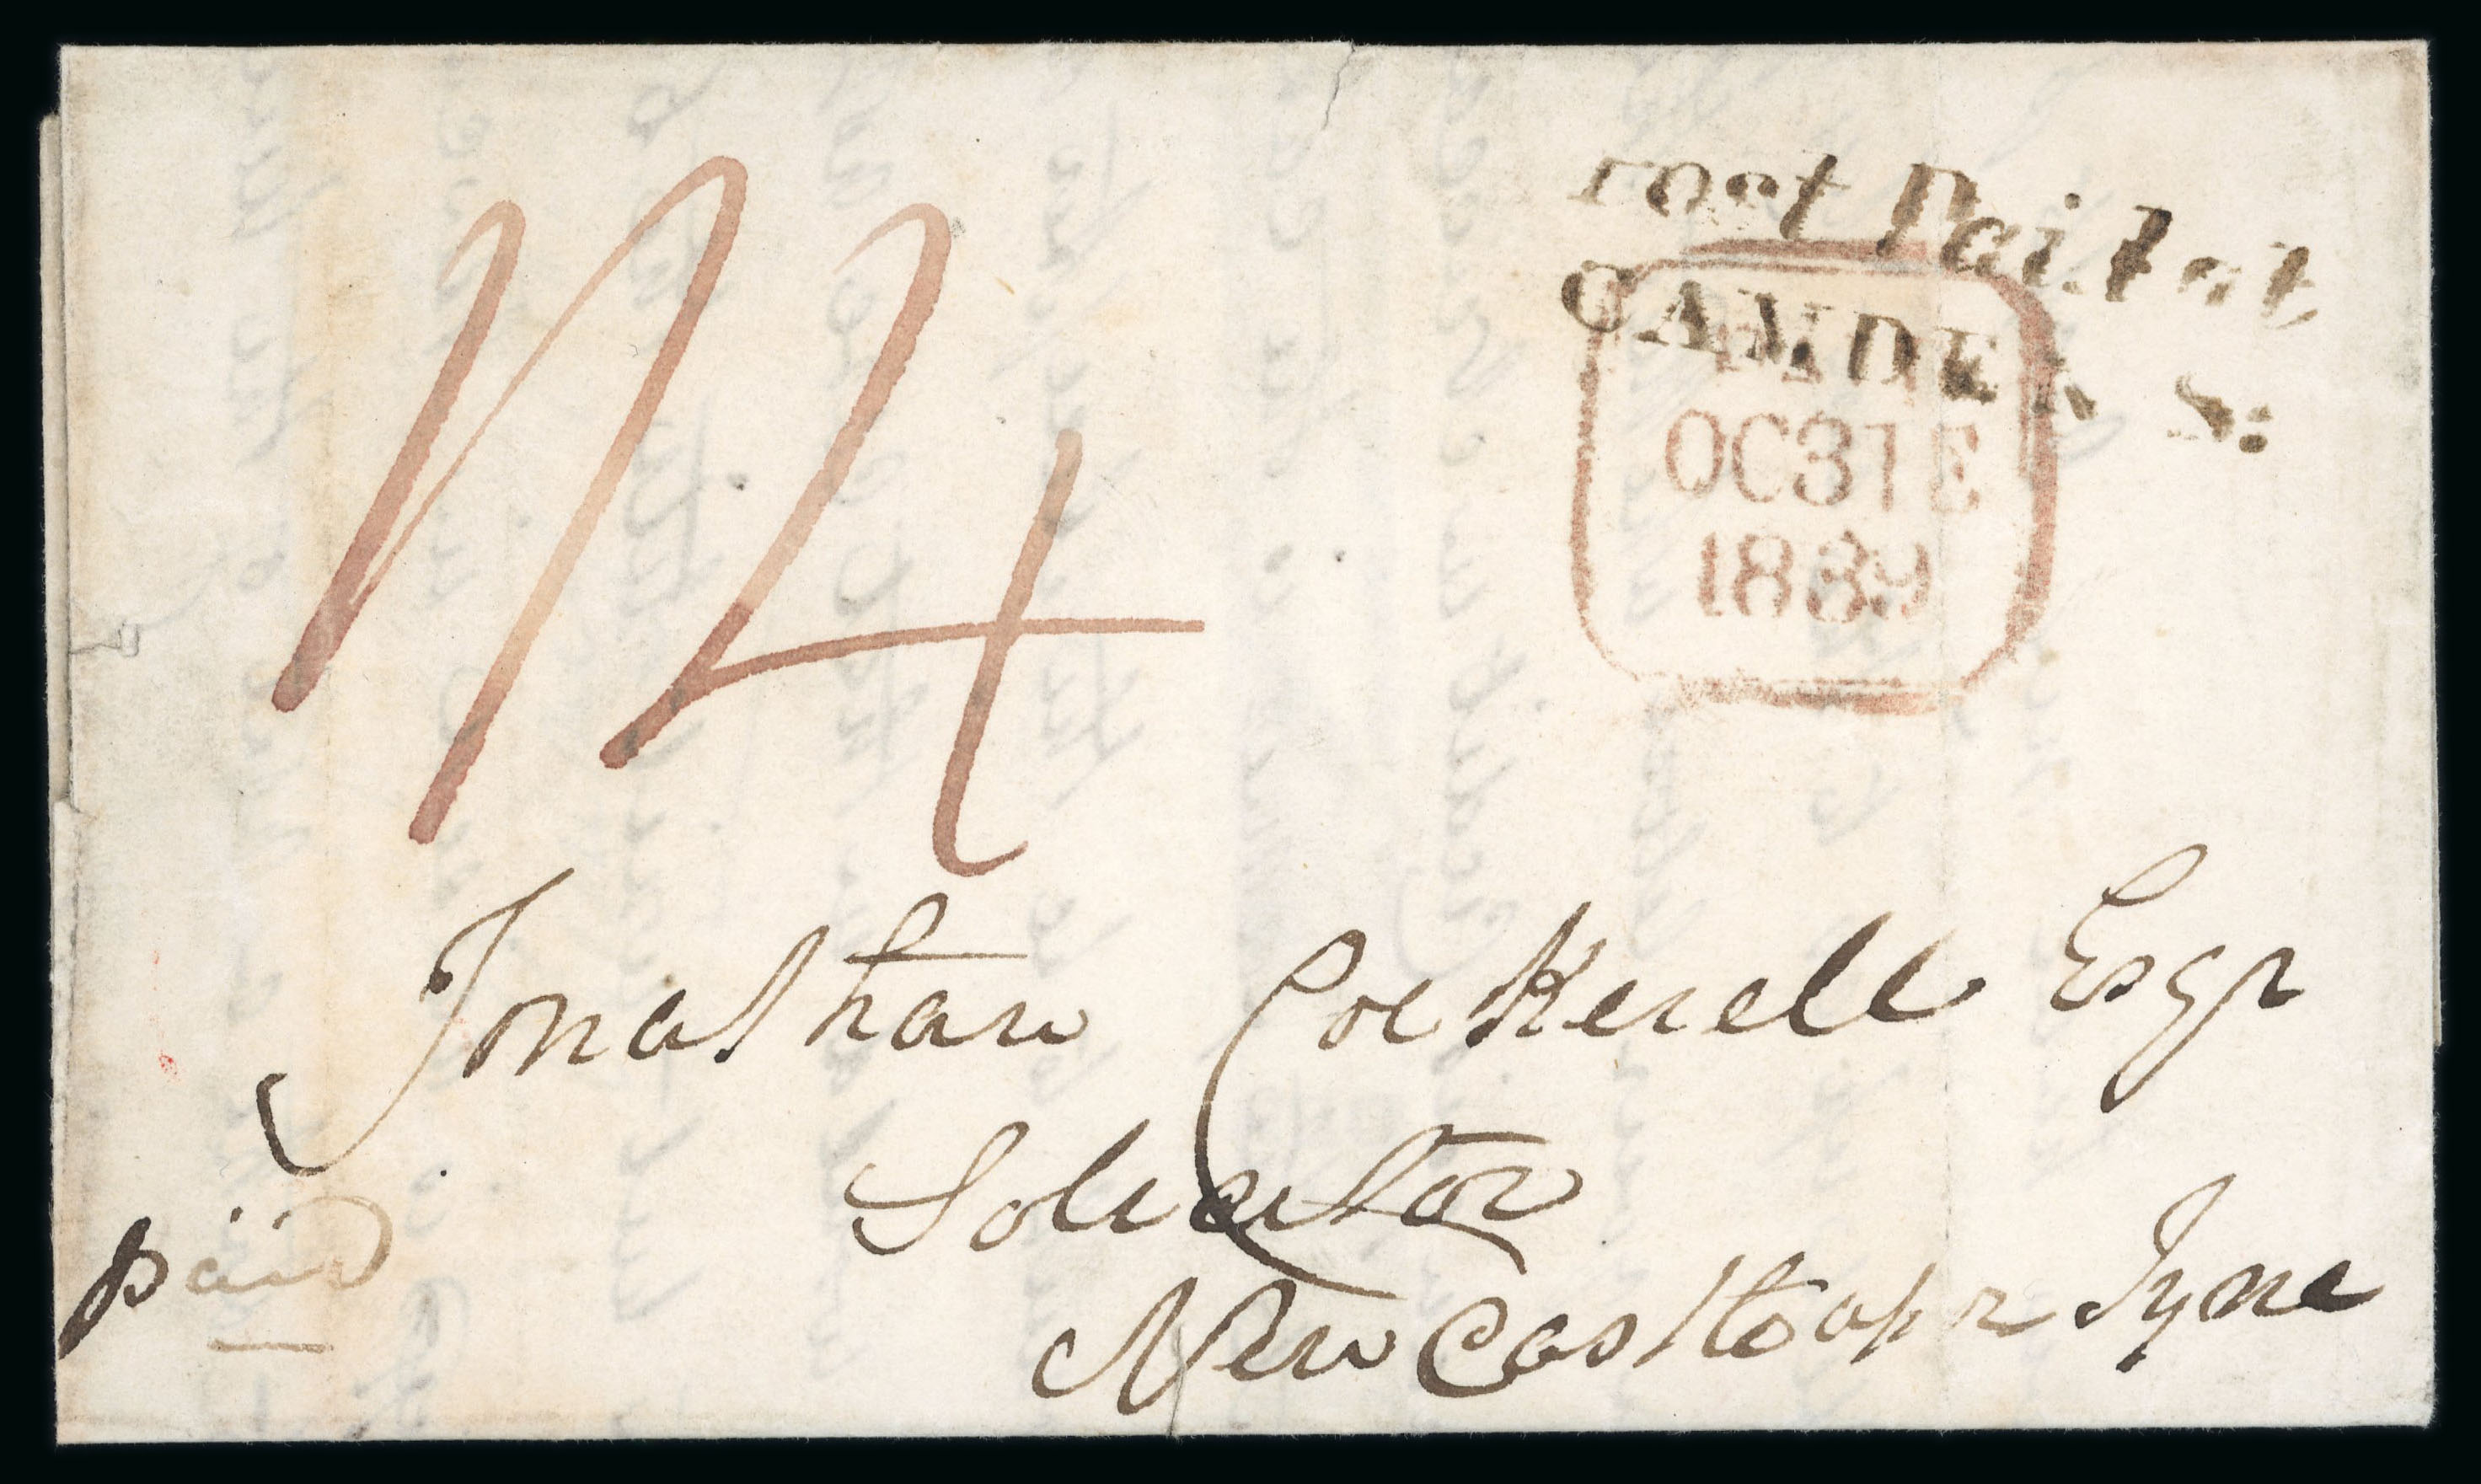 1/4
Post Paid at
CAMDEN St
OC31E
1839
Jonathan Cockerell Esqr
Solicitor
paid
New Castle upn Tyne